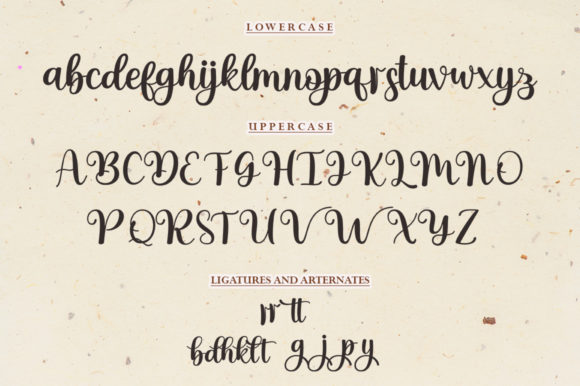 LOWERCASE
abcdefghijklmnopqrstuvwxyz
UPPERCASE
ABCDEFGHIJKLMNO
PQRSTUVWXYZ
LIGATURES AND ARTERNATES
rr tt
bdhklt g j p y